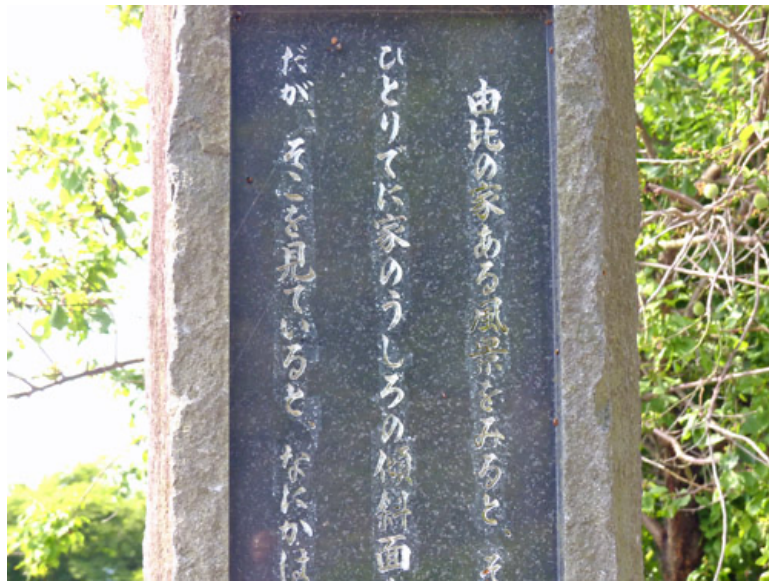 由比の家ある風景をみると、そ
ひとりでに家のうしろの傾斜面
だが、そこを見ていると、なにかほ